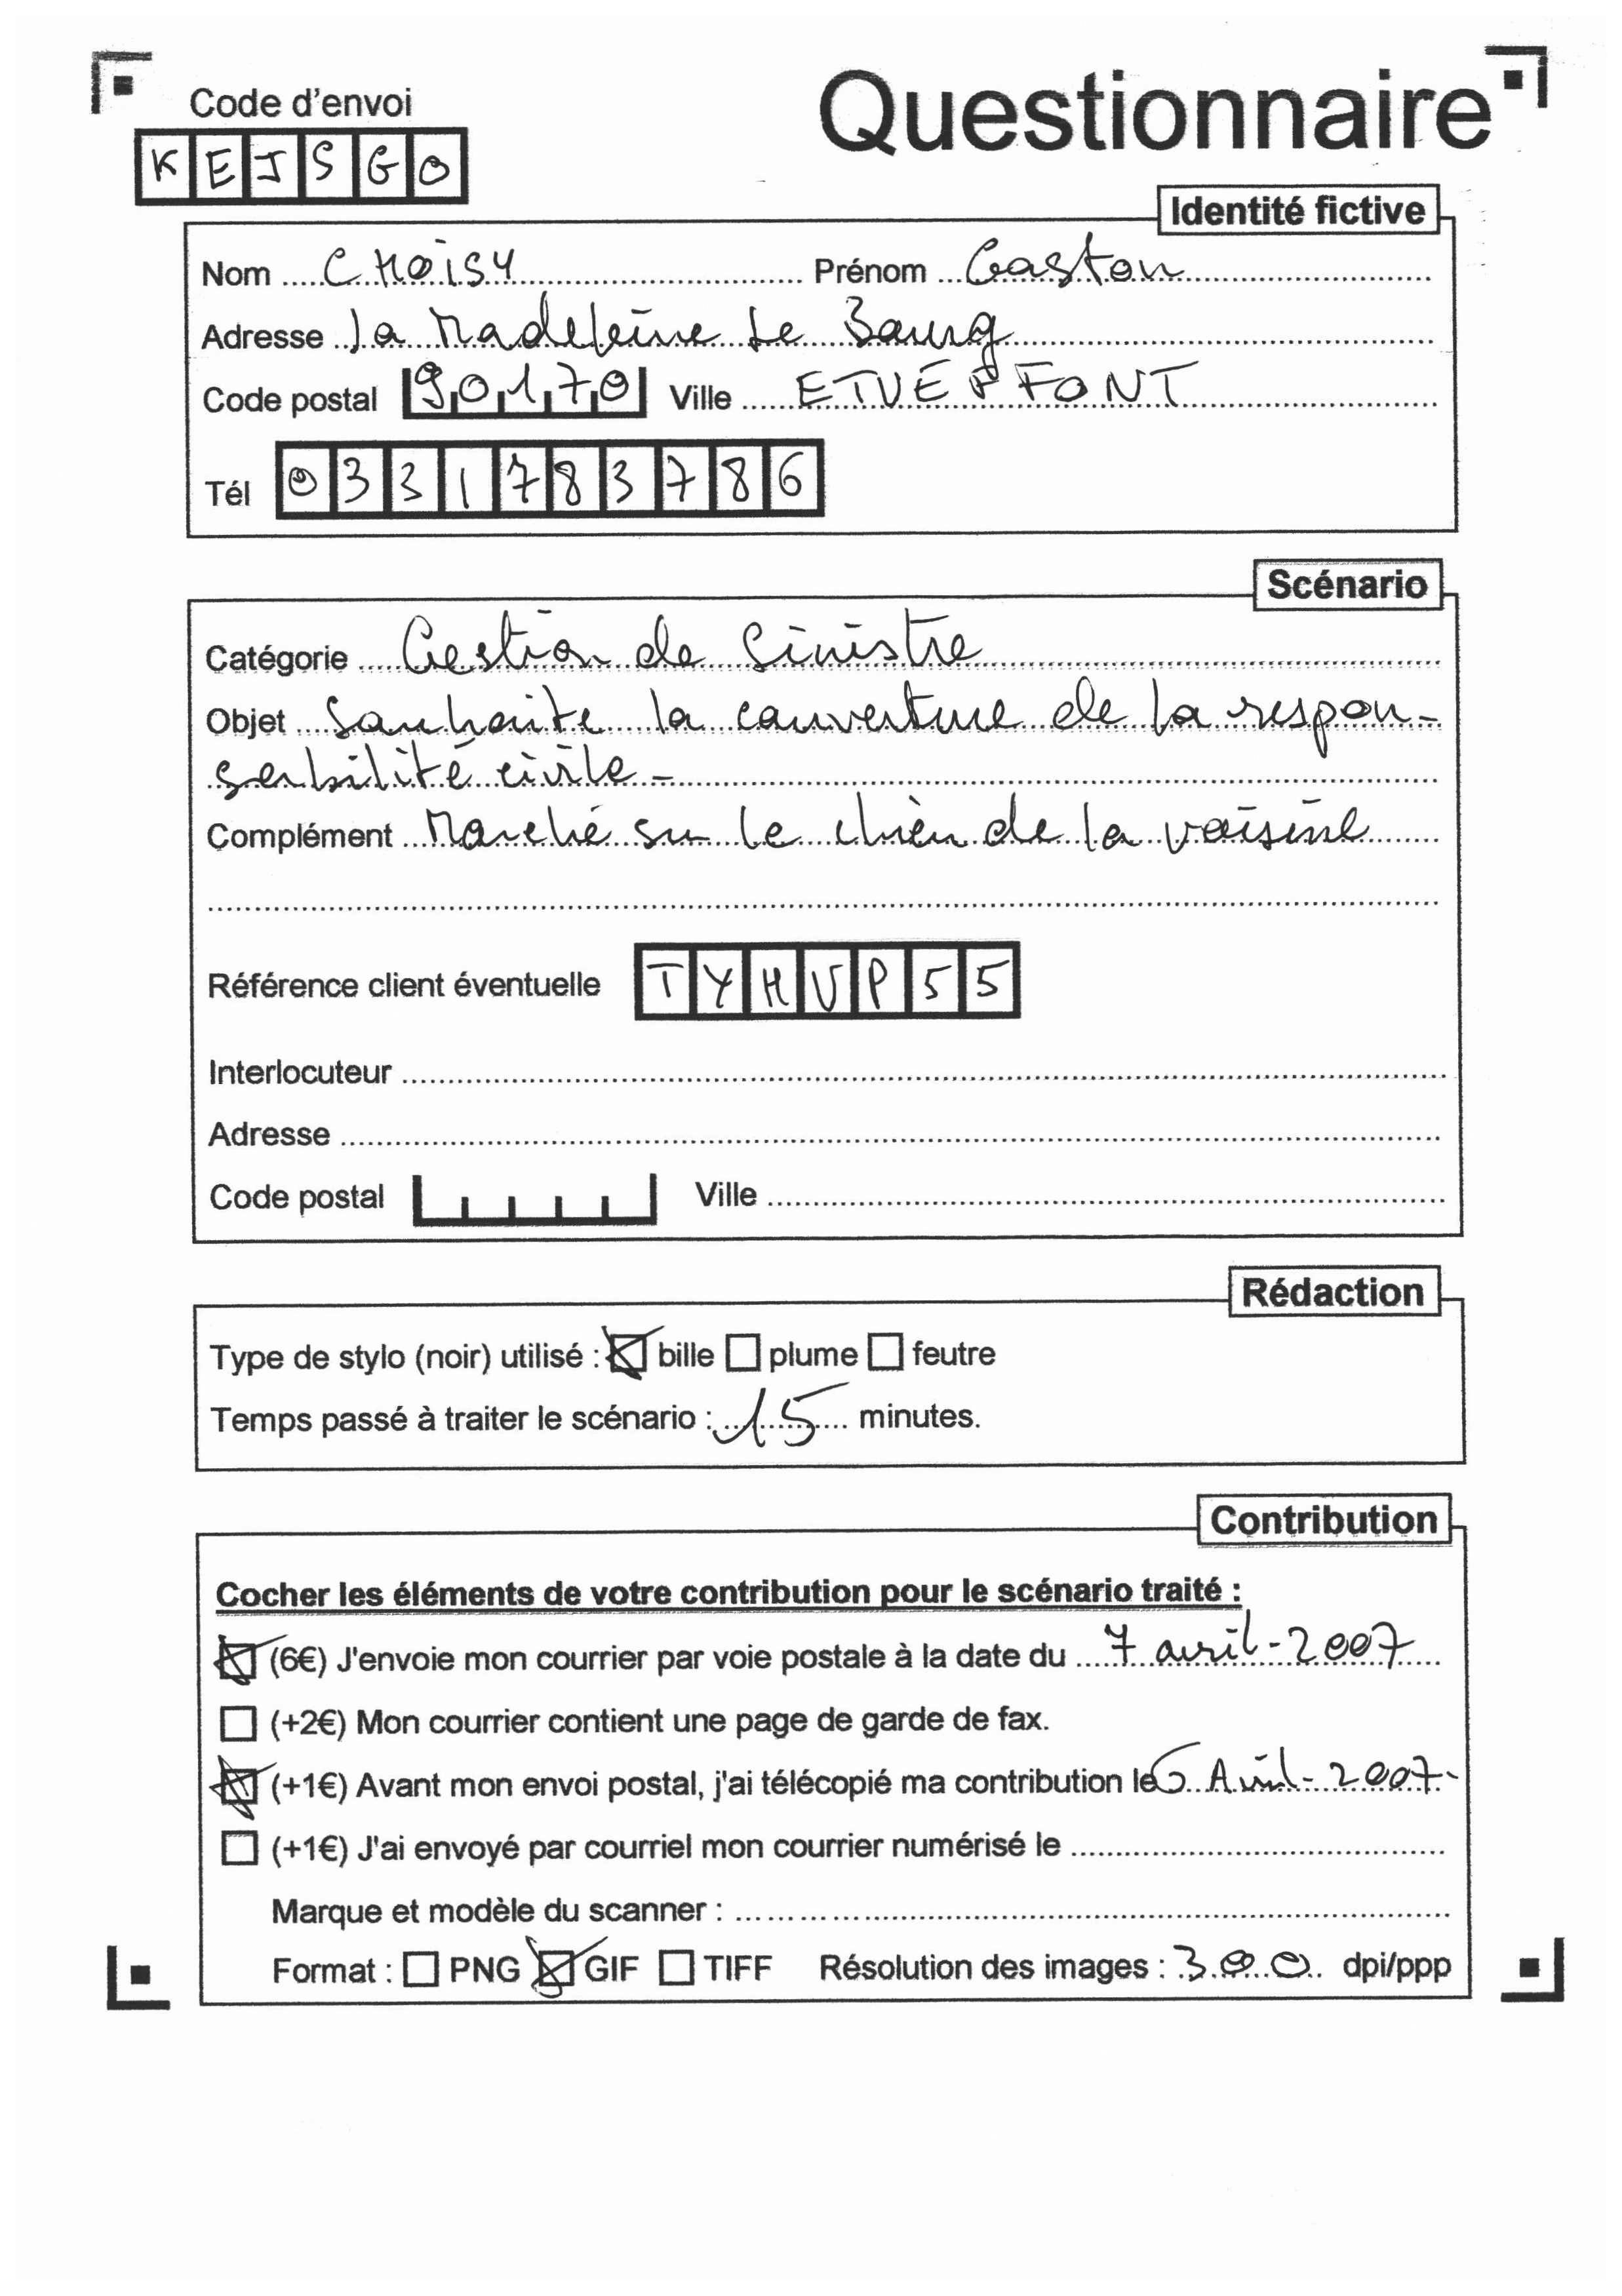 Code d'envoi
Questionnaire
KEJSGO
Identité fictive
Nom CHOISY Prénom Gaston
Adresse la Madeleine Le Bourg
Code postal 90170 Ville ETUEFFONT
Tél 0331783786
Scénario
Catégorie Gestion de Sinistre
Objet Souhaite la couverture de la respon-
sabilité civile-
Complément Marché sur le chien de la voisine
Référence client éventuelle TYHVP55
Interlocuteur
Adresse
Code postal Ville
Rédaction
Type de stylo (noir) utilisé : bille plume feutre
Temps passé à traiter le scénario : 15 minutes.
Contribution
Cocher les éléments de votre contribution pour le scénario traité :
(6€) J'envoie mon courrier par voie postale à la date du 7 avril-2007
(+2€) Mon courrier contient une page de garde de fax.
(+1€) Avant mon envoi postal, j'ai télécopié ma contribution le 6 Avril-2007-
(+1€) J'ai envoyé par courriel mon courrier numérisé le
Marque et modèle du scanner :
Format : PNG GIF TIFF Résolution des images : 300 dpi/ppp